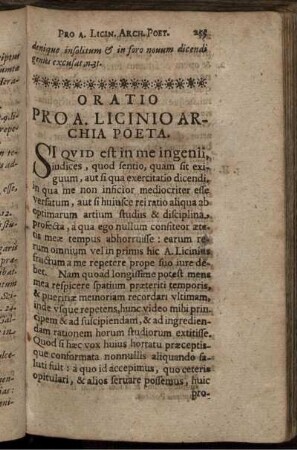 PRO A. LICIN. ARCH. POET. 255
denique insolitum & in foro novum dicendi
genus excusat n. 3.
ORATIO
PRO A. LICINIO AR-
CHIA POETA.
SI QVID est in me ingenii,
iudices, quod sentio, quam sit exi-
guum, aut si qua exercitatio dicendi,
in qua me non inficior mediocriter esse
versatum, aut si huiusce rei ratio aliqua ab
optimarum artium studiis & disciplina
profecta, à qua ego nullum confiteor æta-
tis meæ tempus abhorruisse: earum re-
rum omnium vel in primis hic A. Licinius
fructum a me repetere prope suo iure de-
bet. Nam quoad longissime potest mens
mea respicere spatium præteriti temporis,
& pueritiæ memoriam recordari vltimam,
inde vsque repetens, hunc video mihi prin-
cipem & ad suscipiendam, & ad ingredien-
dam rationem horum studiorum extitisse.
Quod si hæc vox huius hortatu præceptis-
que conformata nonnullis aliquando sa-
luti fuit: à quo id accepimus, quo ceteris
opitulari, & alios seruare possemus, huic
pro-